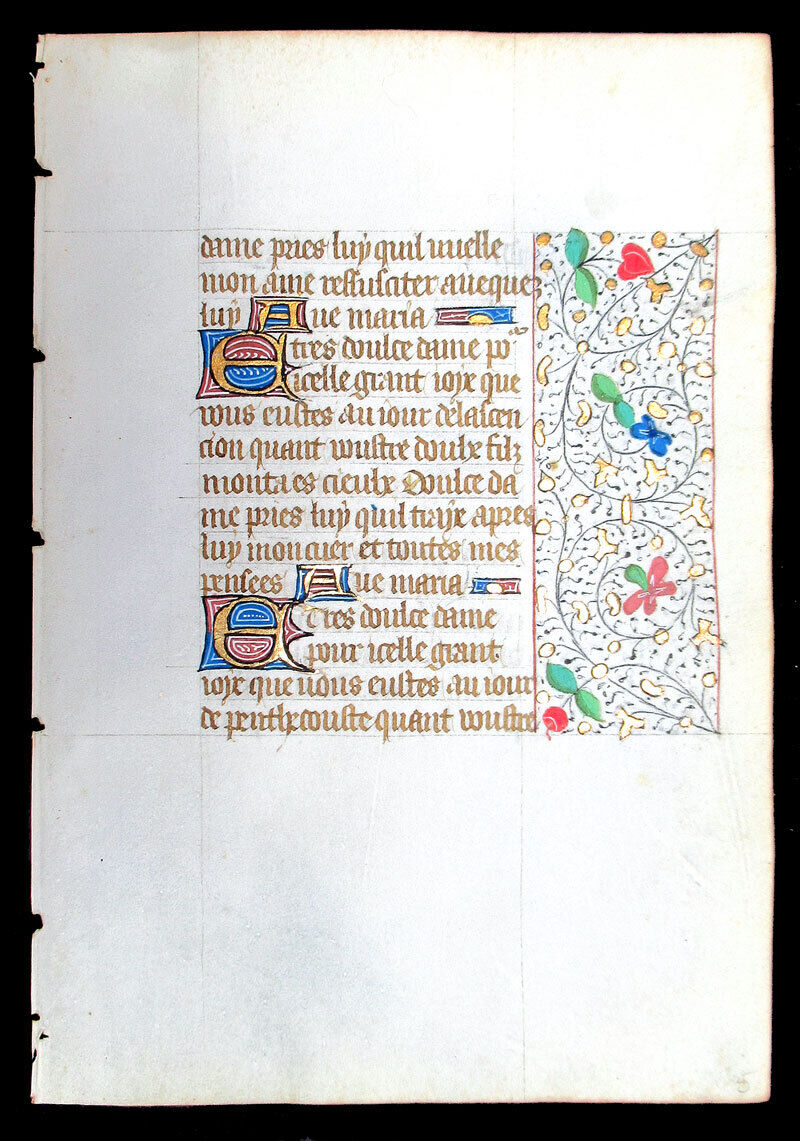 dame pries luy quil vuelle
mon ame ressusciter aueques
luy Aue maria
E tres doulce dame po
icelle grant ioye que
vous eustes au iour delascen
cion quant voustre doulx filz
monta es cieulx Doulce da
me pries luy quil traye apres
luy mon cuer et toutes mes
pensees Aue maria
E tres doulce dame
pour icelle grant
ioye que uous eustes au iour
de penthecouste quant voustre
5